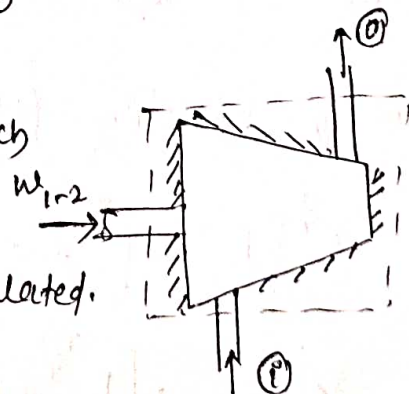 o
ch
W1-2
lated.
i